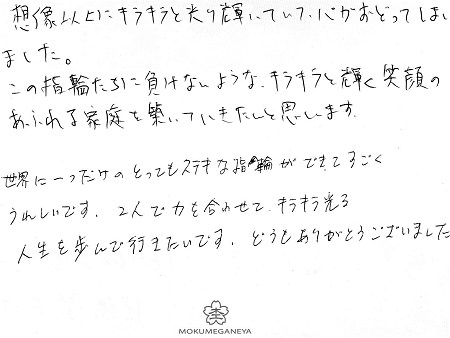 想像以上にキラキラと光り輝いていて、心がおどってしまい
ました。
この指輪たちに負けないような、キラキラと輝く笑顔の
あふれる家庭を築いていきたいと思います。
世界に一つだけのとってもステキな指輪ができてすごく
うれしいです。2人で力を合わせて、キラキラ光る
人生を歩んで行きたいです。どうもありがとうございました
MOKUMEGANEYA